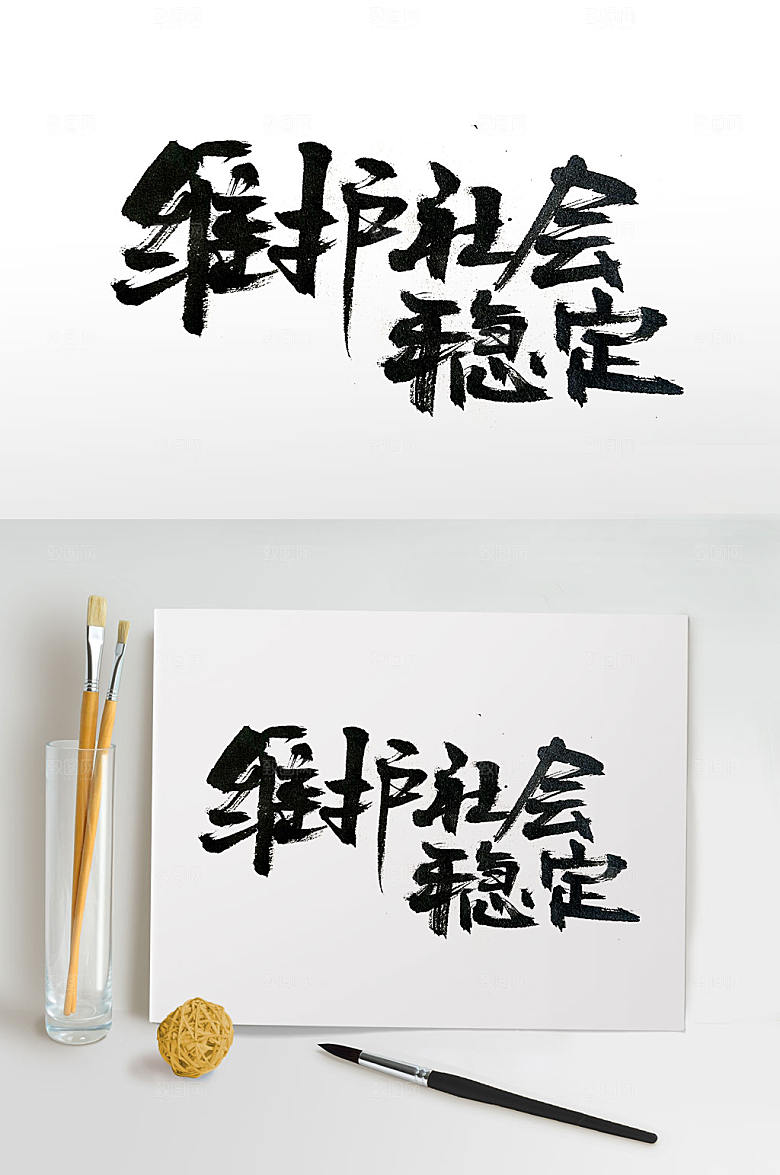 维护社会
稳定
维护社会
稳定